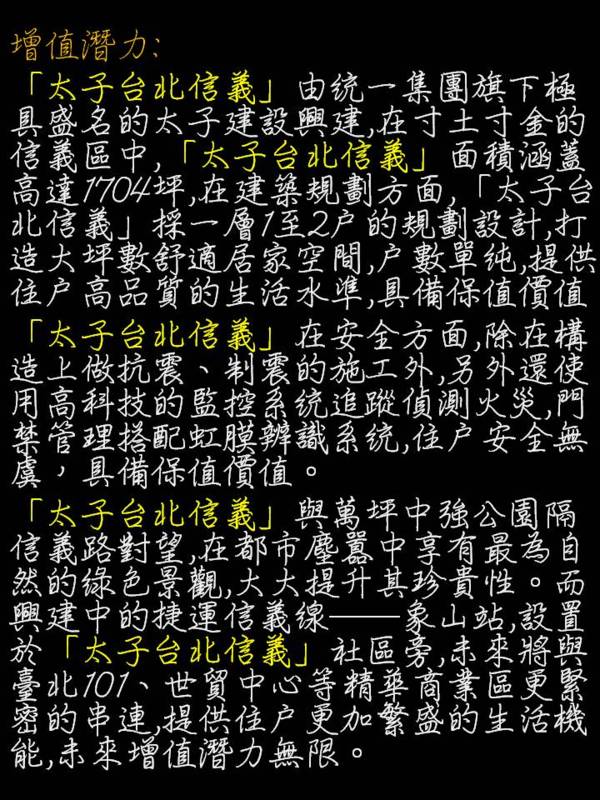 增值潛力:
「太子台北信義」由統一集團旗下極
具盛名的太子建設興建,在寸土寸金的
信義區中,「太子台北信義」面積涵蓋
高達1704坪,在建築規劃方面,「太子台
北信義」採一層1至2戶的規劃設計,打
造大坪數舒適居家空間,戶數單純,提供
住戶高品質的生活水準,具備保值價值
「太子台北信義」在安全方面,除在構
造上做抗震、制震的施工外,另外還使
用高科技的監控系統追蹤偵測火災,門
禁管理搭配虹膜辨識系統,住戶安全無
虞，具備保值價值。
「太子台北信義」與萬坪中強公園隔
信義路對望,在都市塵囂中享有最為自
然的綠色景觀,大大提升其珍貴性。而
興建中的捷運信義線──象山站,設置
於「太子台北信義」社區旁,未來將與
臺北101、世貿中心等精華商業區更緊
密的串連,提供住戶更加繁盛的生活機
能,未來增值潛力無限。